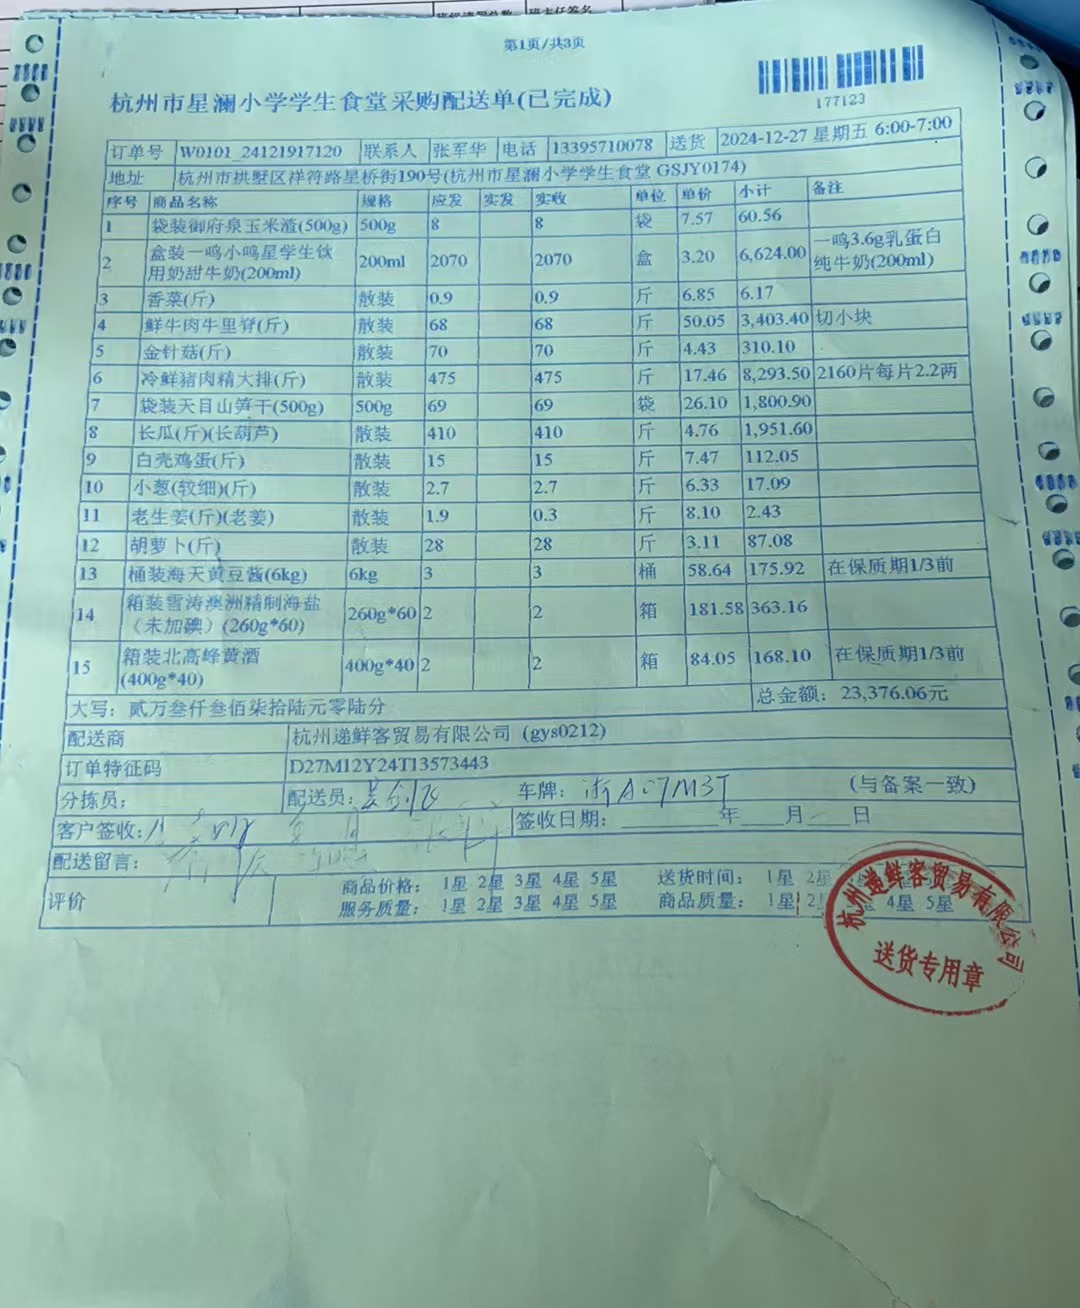 班级清洁总数 班主任签名
第1页/共3页
177123
杭州市星澜小学学生食堂采购配送单(已完成)
订单号 W0101_24121917120 联系人 张军华 电话 13395710078 送货 2024-12-27 星期五 6:00-7:00
地址 杭州市拱墅区祥符路星桥街190号(杭州市星澜小学学生食堂 GSJY0174)
序号 商品名称 规格 应发 实发 实收 单位 单价 小计 备注
1 袋装御府泉玉米渣(500g) 500g 8 8 袋 7.57 60.56
2 盒装一鸣小鸣星学生饮用奶甜牛奶(200ml) 200ml 2070 2070 盒 3.20 6,624.00 一鸣3.6g乳蛋白纯牛奶(200ml)
3 香菜(斤) 散装 0.9 0.9 斤 6.85 6.17
4 鲜牛肉牛里脊(斤) 散装 68 68 斤 50.05 3,403.40 切小块
5 金针菇(斤) 散装 70 70 斤 4.43 310.10
6 冷鲜猪肉精大排(斤) 散装 475 475 斤 17.46 8,293.50 2160片每片2.2两
7 袋装天目山笋干(500g) 500g 69 69 袋 26.10 1,800.90
8 长瓜(斤)(长葫芦) 散装 410 410 斤 4.76 1,951.60
9 白壳鸡蛋(斤) 散装 15 15 斤 7.47 112.05
10 小葱(较细)(斤) 散装 2.7 2.7 斤 6.33 17.09
11 老生姜(斤)(老姜) 散装 1.9 0.3 斤 8.10 2.43
12 胡萝卜(斤) 散装 28 28 斤 3.11 87.08
13 桶装海天黄豆酱(6kg) 6kg 3 3 桶 58.64 175.92 在保质期1/3前
14 箱装雪涛澳洲精制海盐（未加碘）(260g*60) 260g*60 2 2 箱 181.58 363.16
15 箱装北高峰黄酒(400g*40) 400g*40 2 2 箱 84.05 168.10 在保质期1/3前
大写：贰万叁仟叁佰柒拾陆元零陆分 总金额：23,376.06元
配送商 杭州递鲜客贸易有限公司 (gys0212)
订单特征码 D27M12Y24T13573443
分拣员： 配送员： 车牌：浙A07M3T (与备案一致)
客户签收： 签收日期：________年____月____日
配送留言：
评价 商品价格： 1星 2星 3星 4星 5星 送货时间： 1星 2星
服务质量： 1星 2星 3星 4星 5星 商品质量： 1星 2 4星 5星
杭州递鲜客贸易有限公司
送货专用章